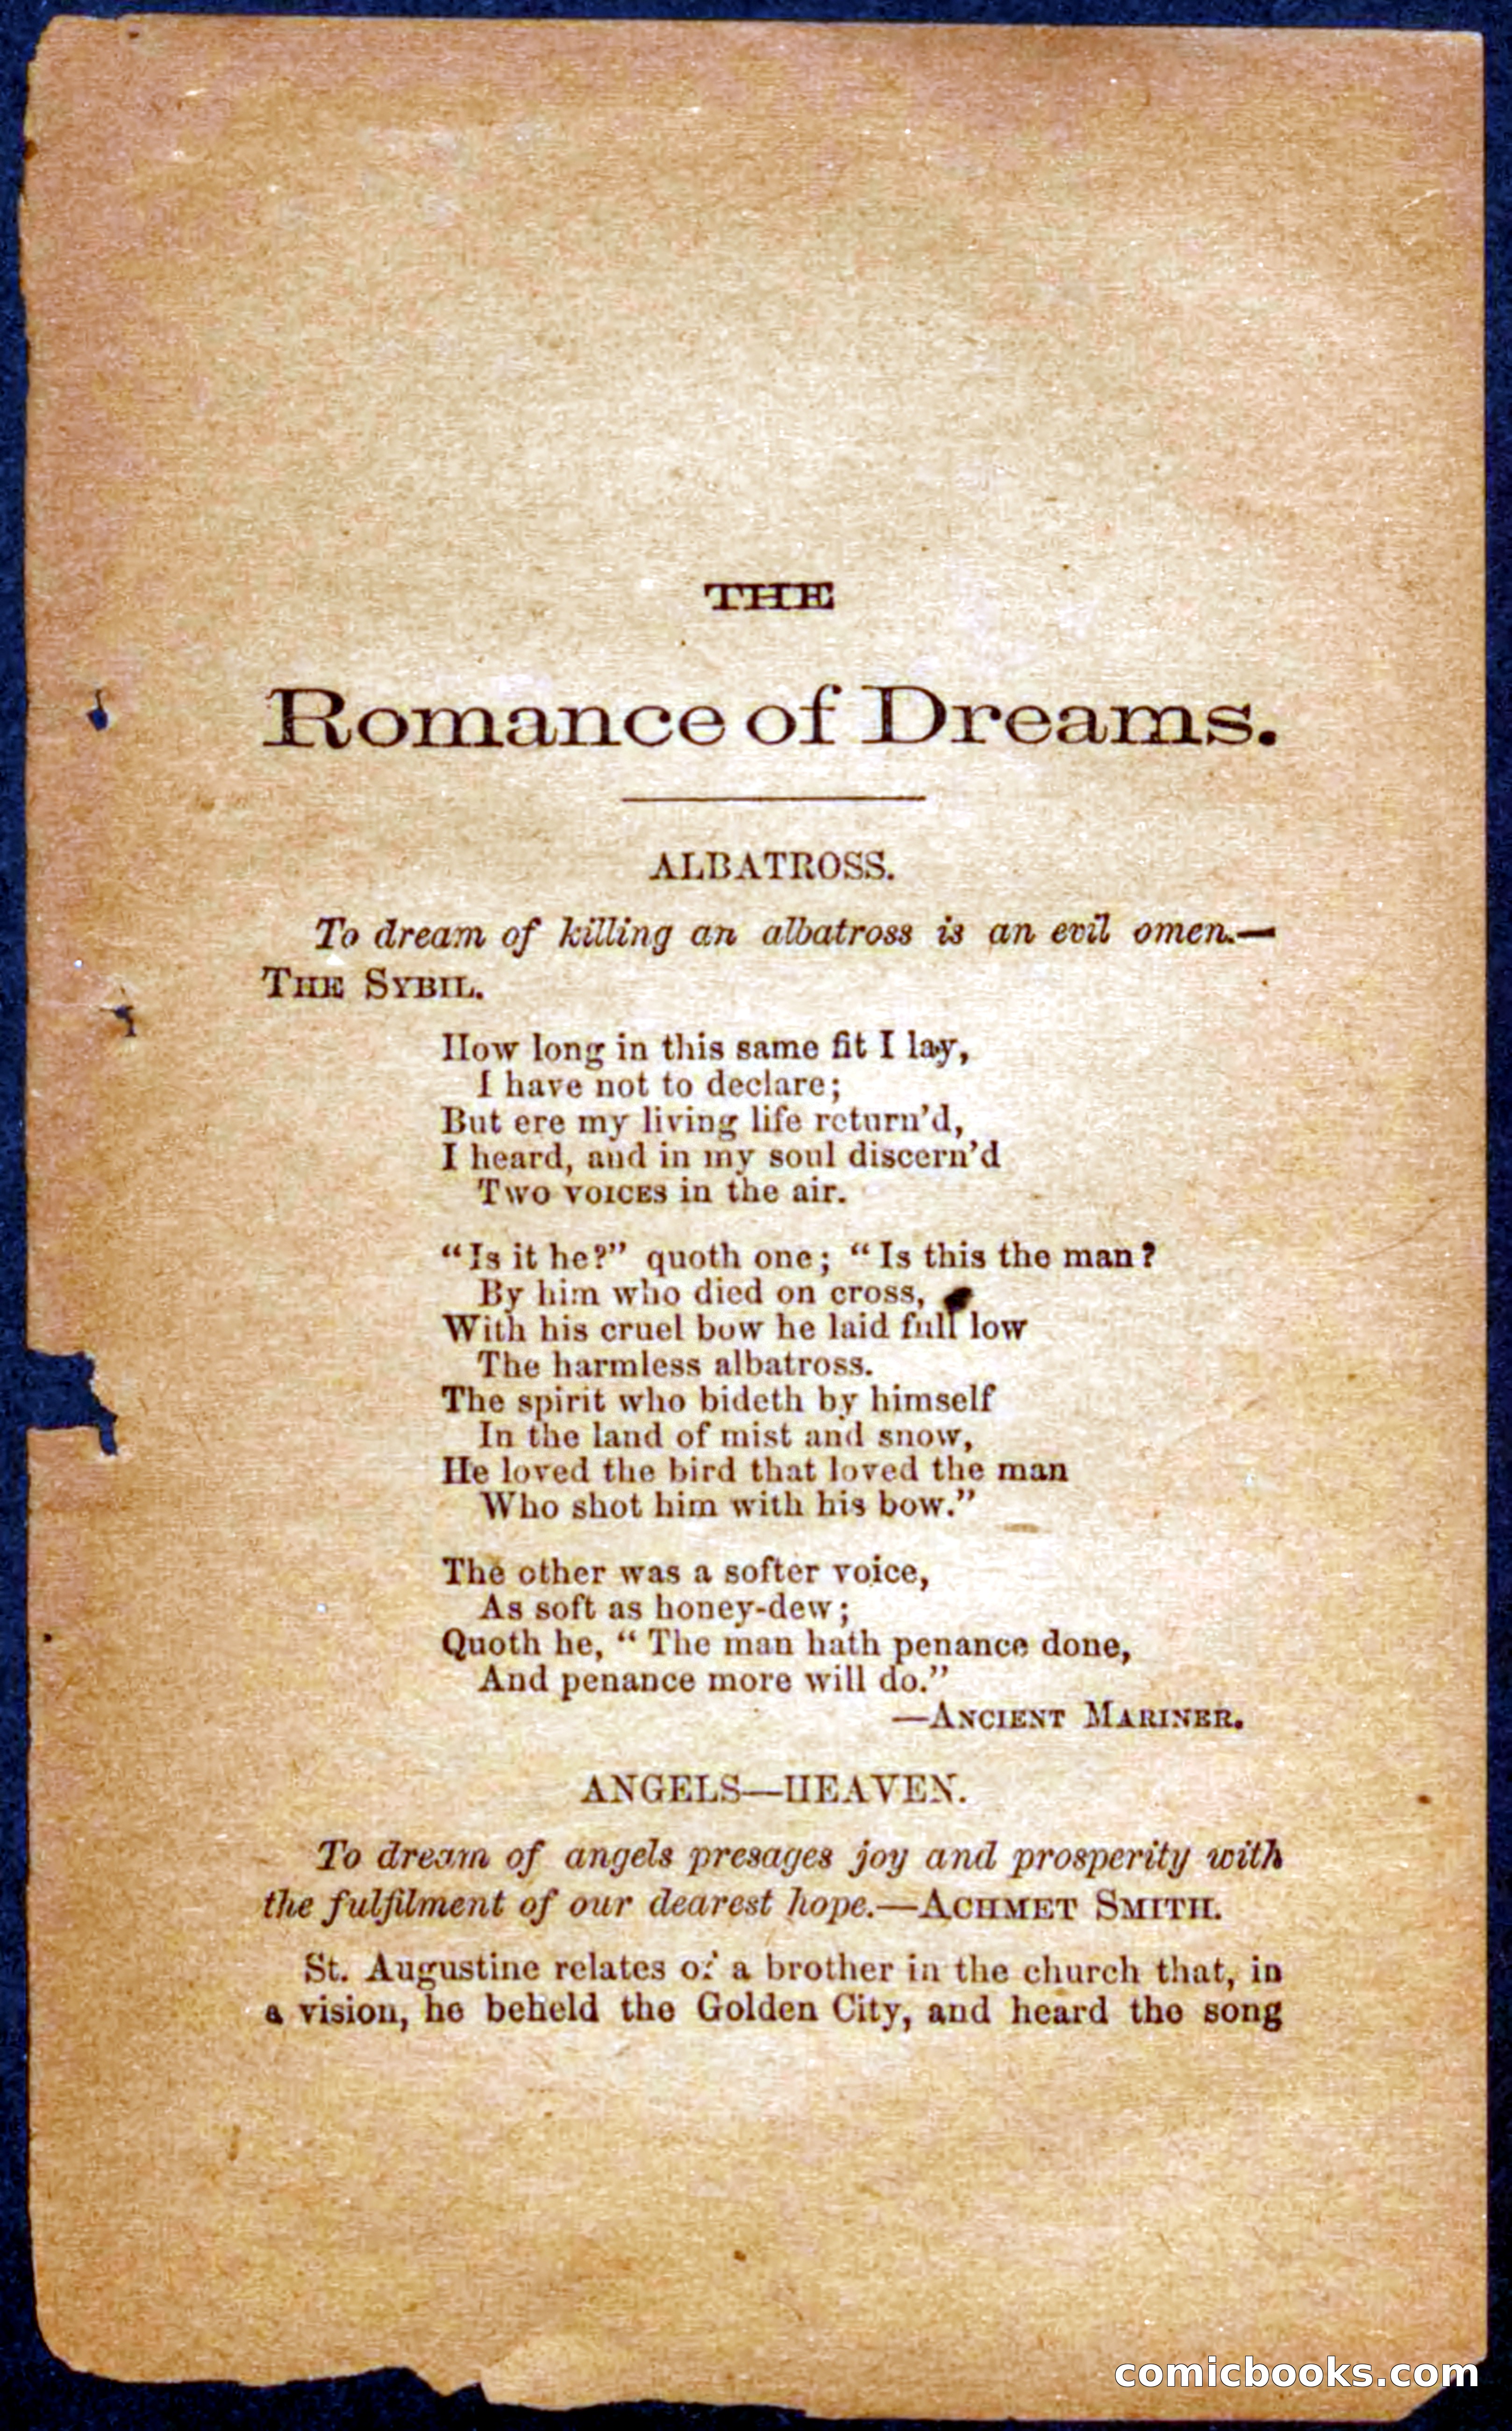 THE
Romance of Dreams.
ALBATROSS.
To dream of killing an albatross is an evil omen.—
THE SYBIL.
How long in this same fit I lay,
I have not to declare;
But ere my living life return'd,
I heard, and in my soul discern'd
Two VOICES in the air.
"Is it he?" quoth one; "Is this the man?
By him who died on cross,
With his cruel bow he laid full low
The harmless albatross.
The spirit who bideth by himself
In the land of mist and snow,
He loved the bird that loved the man
Who shot him with his bow."
The other was a softer voice,
As soft as honey-dew;
Quoth he, "The man hath penance done,
And penance more will do."
—ANCIENT MARINER.
ANGELS—HEAVEN.
To dream of angels presages joy and prosperity with
the fulfilment of our dearest hope.—ACHMET SMITH.
St. Augustine relates of a brother in the church that, in
a vision, he beheld the Golden City, and heard the song
comicbooks.com